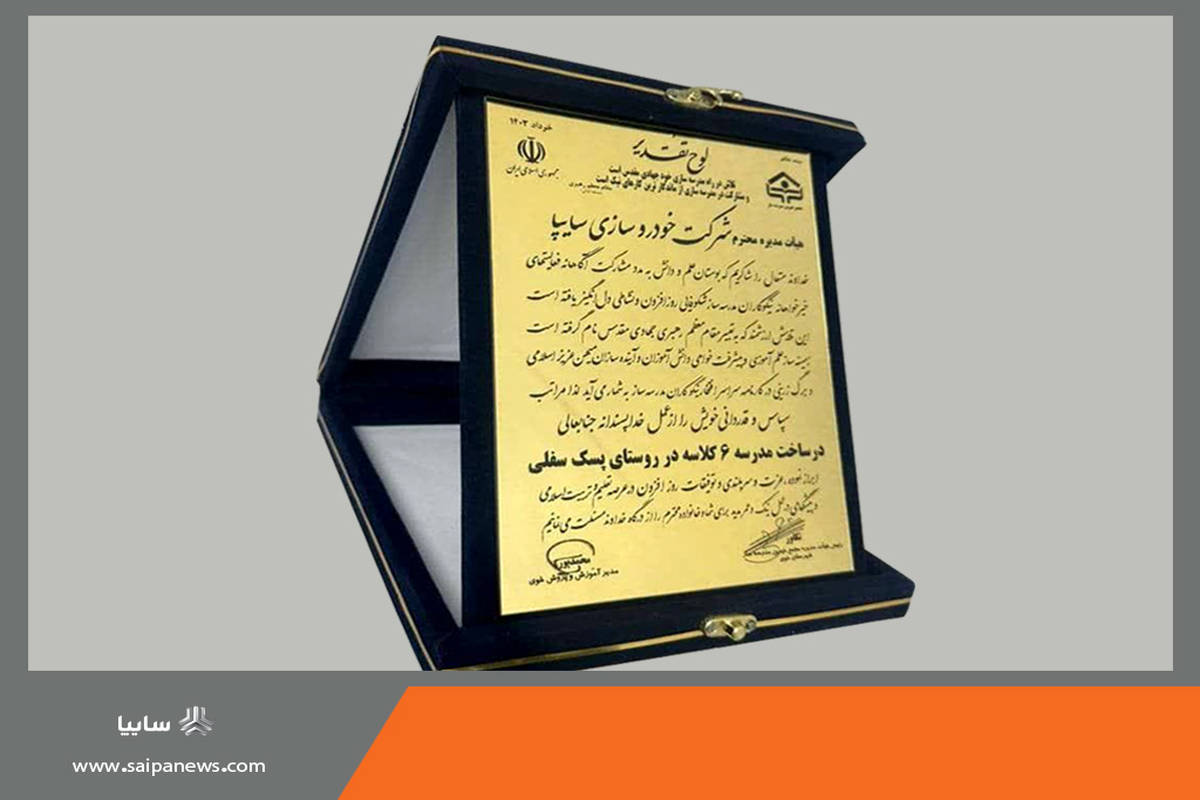 خرداد ۱۴۰۳
لوح تقدیر
جمهوری اسلامی ایران
تلاش در راه مدرسه سازی خود جهادی مقدس است
و مشارکت در مدرسه سازی از ماندگار ترین کارهای نیک است
هیأت مدیره محترم شرکت خودرو سازی سایپا
خداوند متعال را شاکریم که بوستان علم و دانش به مدد مشارکت آگاهانه فعالیتهای
خیرخواهانه نیکوکاران مدرسه ساز شکوفایی روز افزون و نشاطی دل انگیز یافته است
این تلاش ارزشمند که به تعبیر مقام معظم رهبری جهادی مقدس نام گرفته است
زمینه ساز علم آموزی و پیشرفت خواهی دانش آموزان و آینده سازان میهن عزیز اسلامی
و برگ زرینی در کارنامه سراسر افتخار نیکوکاران مدرسه ساز به شمار می آید لذا مراتب
سپاس و قدردانی خویش را از عمل خداپسندانه جنابعالی
در ساخت مدرسه ۶ کلاسه در روستای پسک سفلی
ابراز نموده ، عزت و سربلندی و توفیقات روز افزون در عرصه تعلیم و تربیت اسلامی
و پیشگامی در عمل نیک و عمر مدید برای شما و خانواده محترم را از درگاه خداوند مسئلت می نمائیم
محمدپور
مدیر آموزش و پرورش خوی
رئیس هیأت مدیره مجمع خیرین مدرسه ساز
شهرستان خوی
سایپا
www.saipanews.com